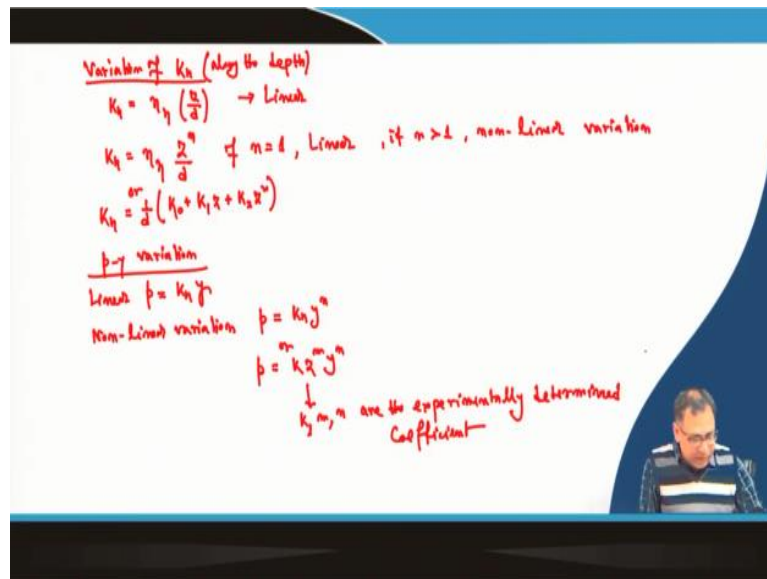 Variation of Kh (along the depth)
Kh = ηh (z/d) → Linear
Kh = ηh z^n/d if n=1, Linear, if n>1, non-linear variation
or
Kh = 1/d (K0 + K1z + K2z^n)
p-y variation
Linear p = Kh y
Non-Linear variation p = Kh y^n
or
p = K z^m y^n
↓
K, m, n are the experimentally determined
Coefficient